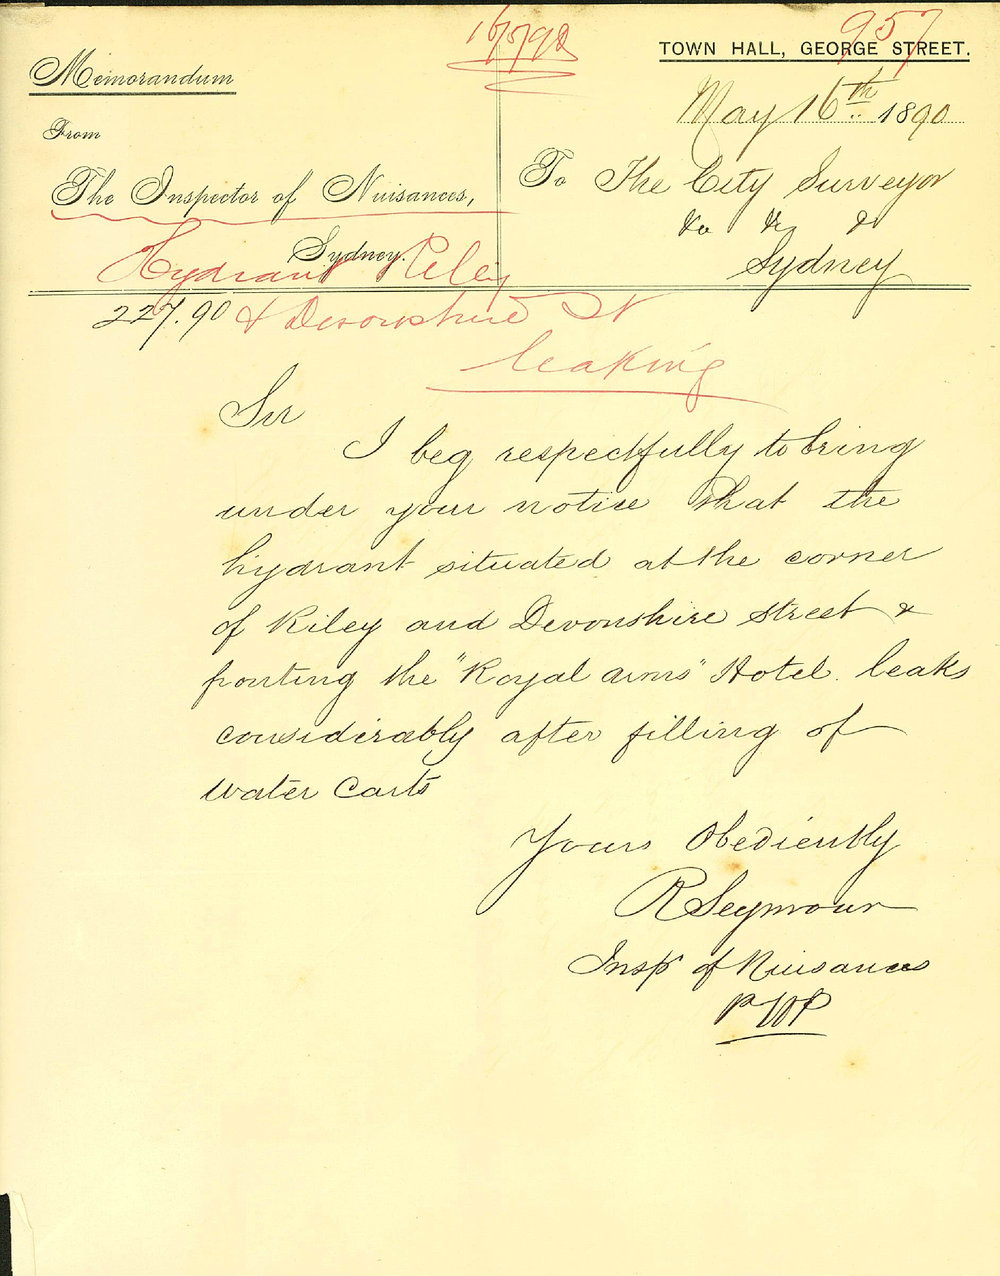 16/5/90
957
Memorandum
TOWN HALL, GEORGE STREET.
May 16th 1890
From
The Inspector of Nuisances,
Sydney.
To The City Surveyor
&c &c &c
Sydney
Hydrant Riley
227.90 & Devonshire St
leaking
Sir
I beg respectfully to bring
under your notice that the
hydrant situated at the corner
of Riley and Devonshire street &
fronting the "Royal arms" Hotel. leaks
considerably after filling of
water Carts
Yours Obediently
R Seymour
Inspr of Nuisances